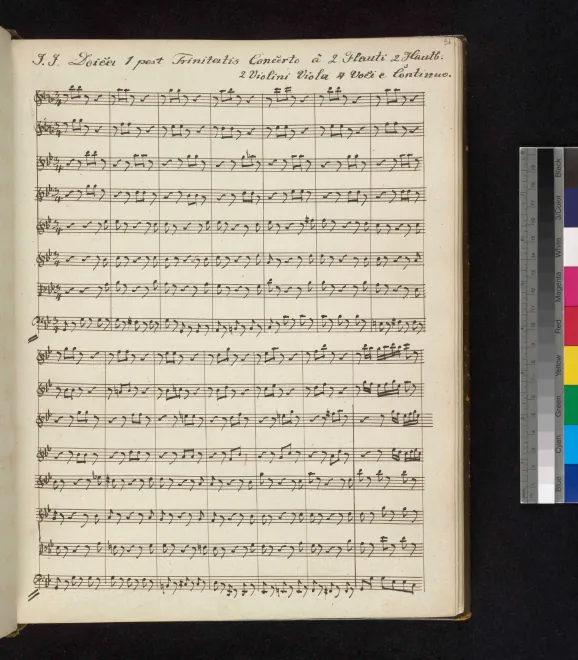 J. J. Doica 1 post Trinitatis Concerto à 2 Flauti 2 Hautb.
2 Violini Viola 4 Voci e Continuo.
Black
3/Color
White
Magenta
Red
Yellow
Green
Cyan
Blue